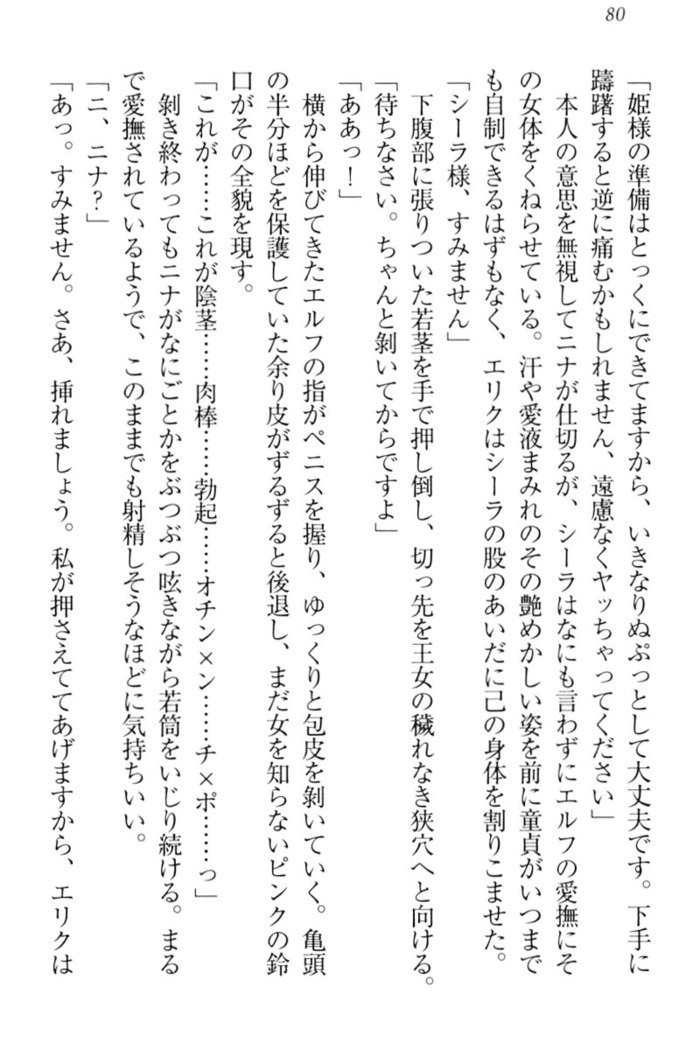 80
「姫様の準備はとっくにできてますから、いきなりぬぷっとして大丈夫です。下手に
躊躇すると逆に痛むかもしれません、遠慮なくヤッちゃってください」
　本人の意思を無視してニナが仕切るが、シーラはなにも言わずにエルフの愛撫にそ
の女体をくねらせている。汗や愛液まみれのその艶めかしい姿を前に童貞がいつまで
も自制できるはずもなく、エリクはシーラの股のあいだに己の身体を割りこませた。
「シーラ様、すみません」
　下腹部に張りついた若茎を手で押し倒し、切っ先を王女の穢れなき狭穴へと向ける。
「待ちなさい。ちゃんと剝いてからですよ」
「ああっ！」
　横から伸びてきたエルフの指がペニスを握り、ゆっくりと包皮を剝いていく。亀頭
の半分ほどを保護していた余り皮がずるずると後退し、まだ女を知らないピンクの鈴
口がその全貌を現す。
「これが……これが陰茎……肉棒……勃起……オチン×ン……チ×ポ……っ」
　剝き終わってもニナがなにごとかをぶつぶつ呟きながら若筒をいじり続ける。まる
で愛撫されているようで、このままでも射精しそうなほどに気持ちいい。
「ニ、ニナ？」
「あっ。すみません。さあ、挿れましょう。私が押さえててあげますから、エリクは